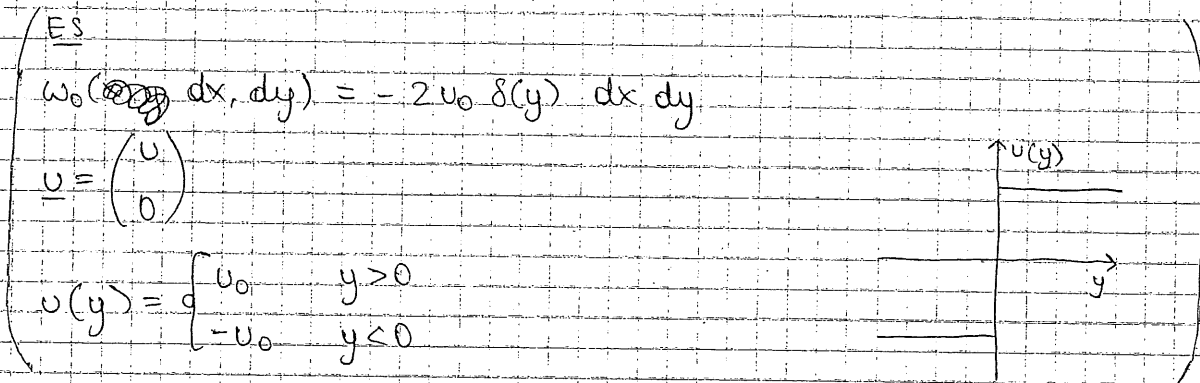 ES
ω₀( dx, dy) = - 2u₀ δ(y) dx dy
u = (u
0)
u(y) = { u₀ y>0
-u₀ y<0
u(y)
y